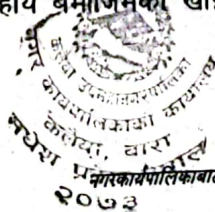 हाय बमोजिमको
कलैया उपमहानगरपालिका
नगर कार्यपालिकाको कार्यालय
कलैया, बारा
मधेश प्रदेश, नेपाल
नगरकार्यपालिकाबाट
२०७३